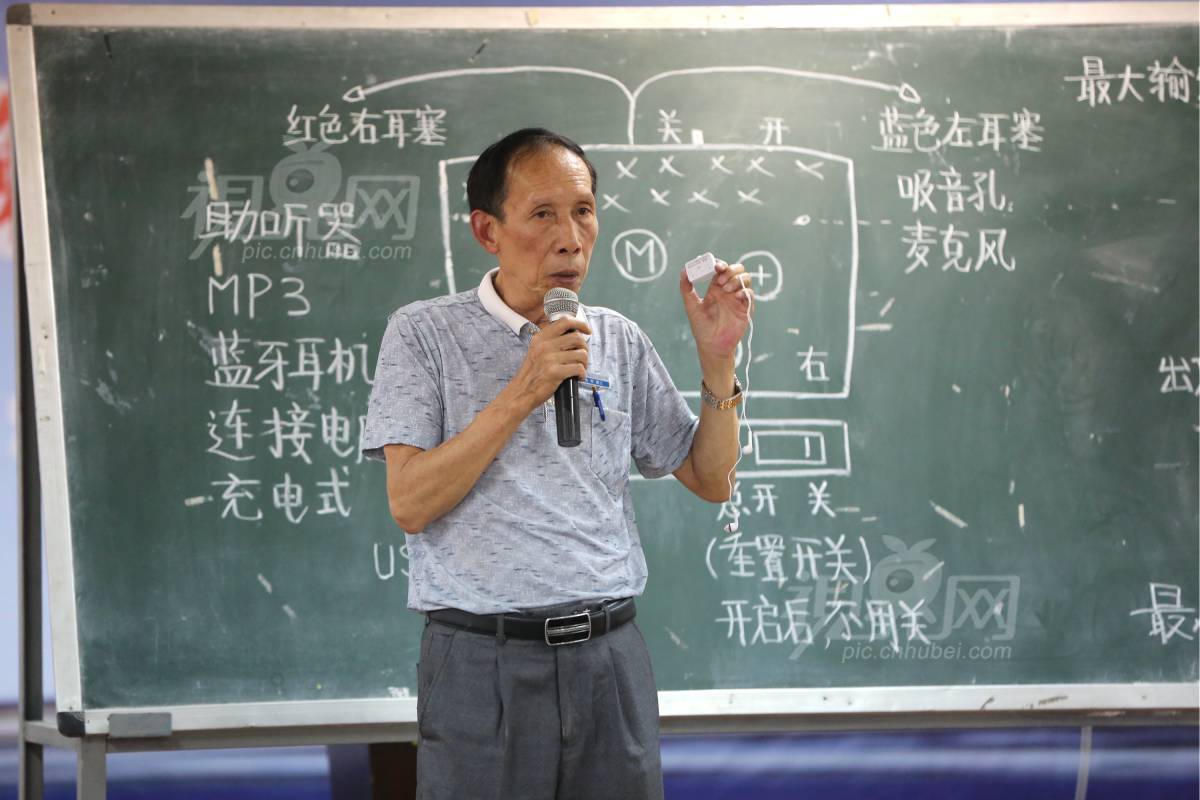 最大输
红色右耳塞
关 开
蓝色左耳塞
吸音孔
麦克风
助听器
MP3
蓝牙耳机
连接电
充电式
M
+
右
US
总开 关
(重置开关)
开启后不用关
出
最
视界网
pic.cnhubei.com
视界网
pic.cnhubei.com